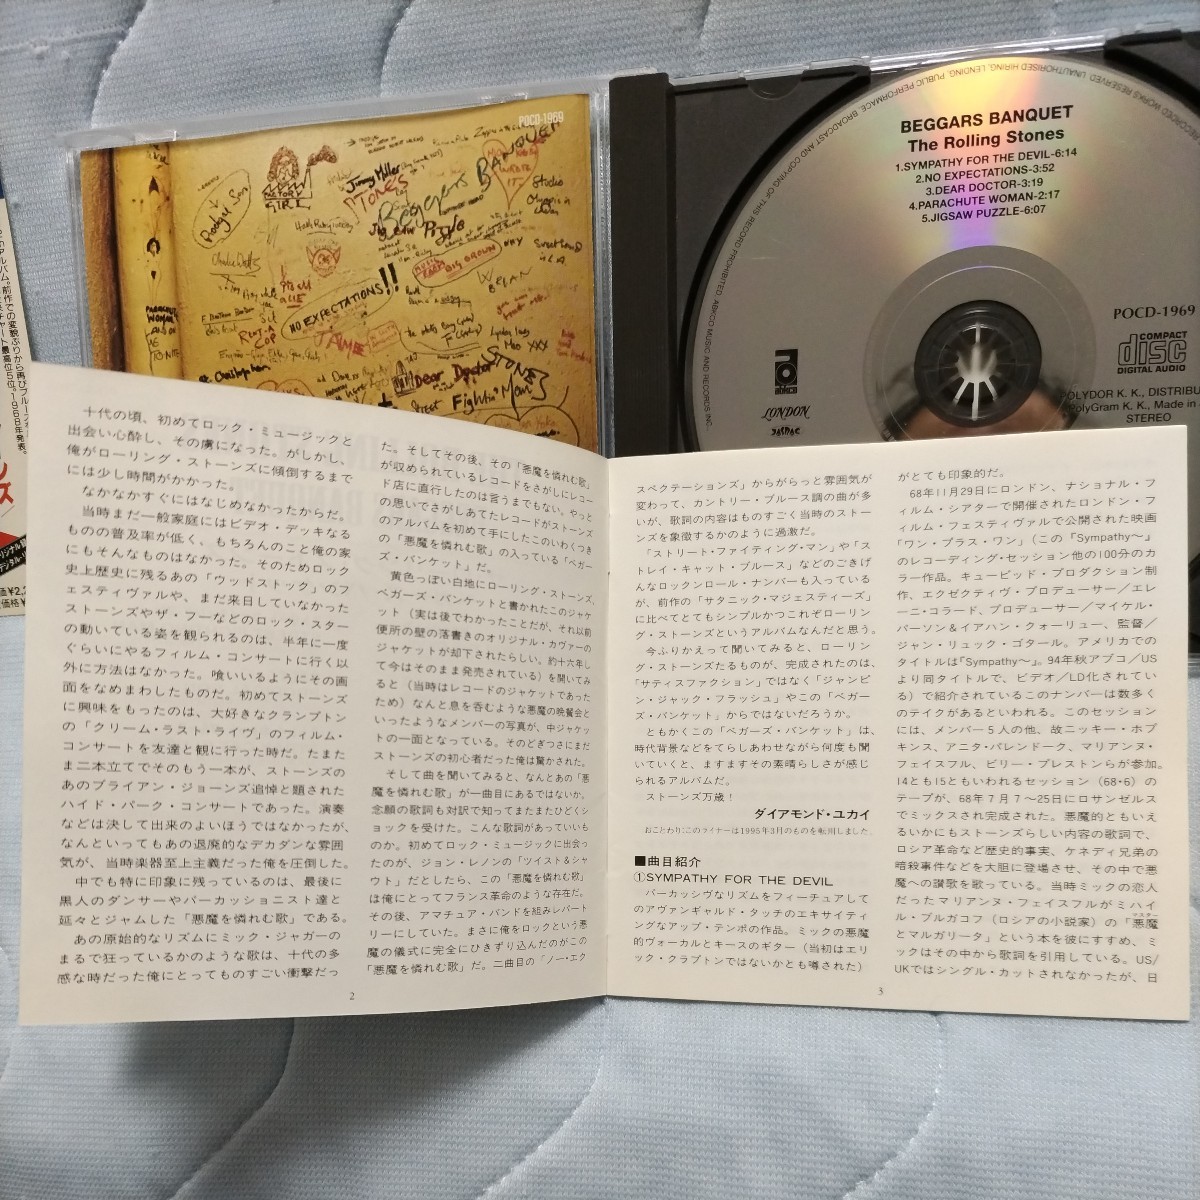 POCD-1969
Jimmy Miller
BEGGARS BANQUET
NO EXPECTATIONS!!
Dear Doctor
BEGGARS BANQUET
The Rolling Stones
1.SYMPATHY FOR THE DEVIL-6:14
2.NO EXPECTATIONS-3:52
3.DEAR DOCTOR-3:19
4.PARACHUTE WOMAN-2:17
5.JIGSAW PUZZLE-6:07
POCD-1969
COMPACT
disc
DIGITAL AUDIO
LONDON
POLYDOR K. K., DISTRIBU
PolyGram K. K., Made in
STEREO
十代の頃、初めてロック・ミュージックと
出会い心酔し、その虜になった。がしかし、
俺がローリング・ストーンズに傾倒するまで
には少し時間がかかった。
なかなかすぐにはなじめなかったからだ。
当時まだ一般家庭にはビデオ・デッキなる
ものの普及率が低く、もちろんのこと俺の家
にもそんなものはなかった。そのためロック
史上歴史に残るあの「ウッドストック」のフ
ェスティヴァルや、まだ来日していなかった
ストーンズやザ・フーなどのロック・スター
の動いている姿を観られるのは、半年に一度
ぐらいにやるフィルム・コンサートに行く以
外に方法はなかった。喰いいるようにその画
面をなめまわしたものだ。初めてストーンズ
に興味をもったのは、大好きなクランプトン
の「クリーム・ラスト・ライヴ」のフィルム・
コンサートを友達と観に行った時だ。たまた
ま二本立てでそのもう一本が、ストーンズの
あのブライアン・ジョーンズ追悼と題された
ハイド・パーク・コンサートであった。演奏
などは決して出来のよいほうではなかったが、
なんといってもあの退廃的なデカダンな雰囲
気が、当時楽器至上主義だった俺を圧倒した。
中でも特に印象に残っているのは、最後に
黒人のダンサーやパーカッショニスト達と
延々とジャムした「悪魔を憐れむ歌」である。
あの原始的なリズムにミック・ジャガーの
まるで狂っているかのような歌は、十代の多
感な時だった俺にとってものすごい衝撃だっ
た。そしてその後、その「悪魔を憐れむ歌」
が収められているレコードをさがしにレコー
ド店に直行したのは言うまでもない。やっと
の思いでさがしあてたレコードがストーンズ
のアルバムを初めて手にしたこのいわくつき
の「悪魔を憐れむ歌」の入っている「ベガー
ズ・バンケット」だ。
黄色っぽい白地にローリング・ストーンズ、
ベガーズ・バンケットと書かれたこのジャケ
ット（実は後でわかったことだが、それ以前
便所の壁の落書きのオリジナル・カヴァーの
ジャケットが却下されたらしい。約十六年し
て今はそのまま発売されている）を開いてみ
ると（当時はレコードのジャケットであった
ため）なんと息を呑むような悪魔の晩餐会と
いったようなメンバーの写真が、中ジャケッ
トの一面となっている。そのどぎつさにまだ
ストーンズの初心者だった俺は驚かされた。
そして曲を聞いてみると、なんとあの「悪
魔を憐れむ歌」が一曲目にあるではないか。
念願の歌詞も対訳で知ってまたまたひどくシ
ョックを受けた。こんな歌詞があっていいも
のか。初めてロック・ミュージックに出会っ
たのが、ジョン・レノンの「ツイスト＆シャ
ウト」だとしたら、この「悪魔を憐れむ歌」
は俺にとってフランス革命のような存在だ。
その後、アマチュア・バンドを組みレパート
リーにしていた。まさに俺をロックという悪
魔の儀式に完全にひきずり込んだのがこの
「悪魔を憐れむ歌」だ。二曲目の「ノー・エク
2
スペクテーションズ」からがらっと雰囲気が
変わって、カントリー・ブルース調の曲が多
いが、歌詞の内容はものすごく当時のストー
ンズを象徴するかのように過激だ。
「ストリート・ファイティング・マン」や「ス
トレイ・キャット・ブルース」などのごきげ
んなロックンロール・ナンバーも入っている
が、前作の「サタニック・マジェスティーズ」
に比べてとてもシンプルかつこれぞローリン
グ・ストーンズというアルバムなんだと思う。
今ふりかえって聞いてみると、ローリン
グ・ストーンズたるものが、完成されたのは、
「サティスファクション」ではなく「ジャンピ
ン・ジャック・フラッシュ」やこの「ベガー
ズ・バンケット」からではないだろうか。
ともかくこの「ベガーズ・バンケット」は、
時代背景などをてらしあわせながら何度も聞
いていくと、ますますその素晴らしさが感じ
られるアルバムだ。
ストーンズ万歳！
ダイアモンド・ユカイ
おことわり：このライナーは1995年3月のものを転用しました。
■曲目紹介
①SYMPATHY FOR THE DEVIL
パーカッシヴなリズムをフィーチュアして
のアヴァンギャルド・タッチのエキサイティ
ングなアップ・テンポの作品。ミックの悪魔
的ヴォーカルとキースのギター（当初はエリ
ック・クラプトンではないかとも噂された）
がとても印象的だ。
68年11月29日にロンドン、ナショナル・フ
ィルム・シアターで開催されたロンドン・フ
ィルム・フェスティヴァルで公開された映画
「ワン・プラス・ワン」（この「Sympathy～」
のレコーディング・セッション他の100分のカ
ラー作品。キューピッド・プロダクション制
作、エクゼクティヴ・プロデューサー／エレ
ーニ・コラード、プロデューサー／マイケル・
パーソン＆イアハン・クォーリュー、監督／
ジャン・リュック・ゴタール。アメリカでの
タイトルは「Sympathy～」。94年秋アブコ／US
より同タイトルで、ビデオ／LD化されてい
る）で紹介されているこのナンバーは数多く
のテイクがあるといわれる。このセッション
には、メンバー5人の他、故ニッキー・ホプ
キンス、アニタ・パレンドーク、マリアンヌ・
フェイスフル、ビリー・プレストンらが参加。
14とも15ともいわれるセッション（68・6）の
テープが、68年7月7～25日にロサンゼルス
でミックスされ完成された。悪魔的ともいえ
るいかにもストーンズらしい内容の歌詞で、
ロシア革命など歴史的事実、ケネディ兄弟の
暗殺事件などを大胆に登場させ、その中で悪
魔への讃歌を歌っている。当時ミックの恋人
だったマリアンヌ・フェイスフルがミハイ
ル・ブルガコフ（ロシアの小説家）の「悪魔
とマルガリータ」という本を彼にすすめ、ミ
ックはその中から歌詞を引用している。US/
UKではシングル・カットされなかったが、日
3